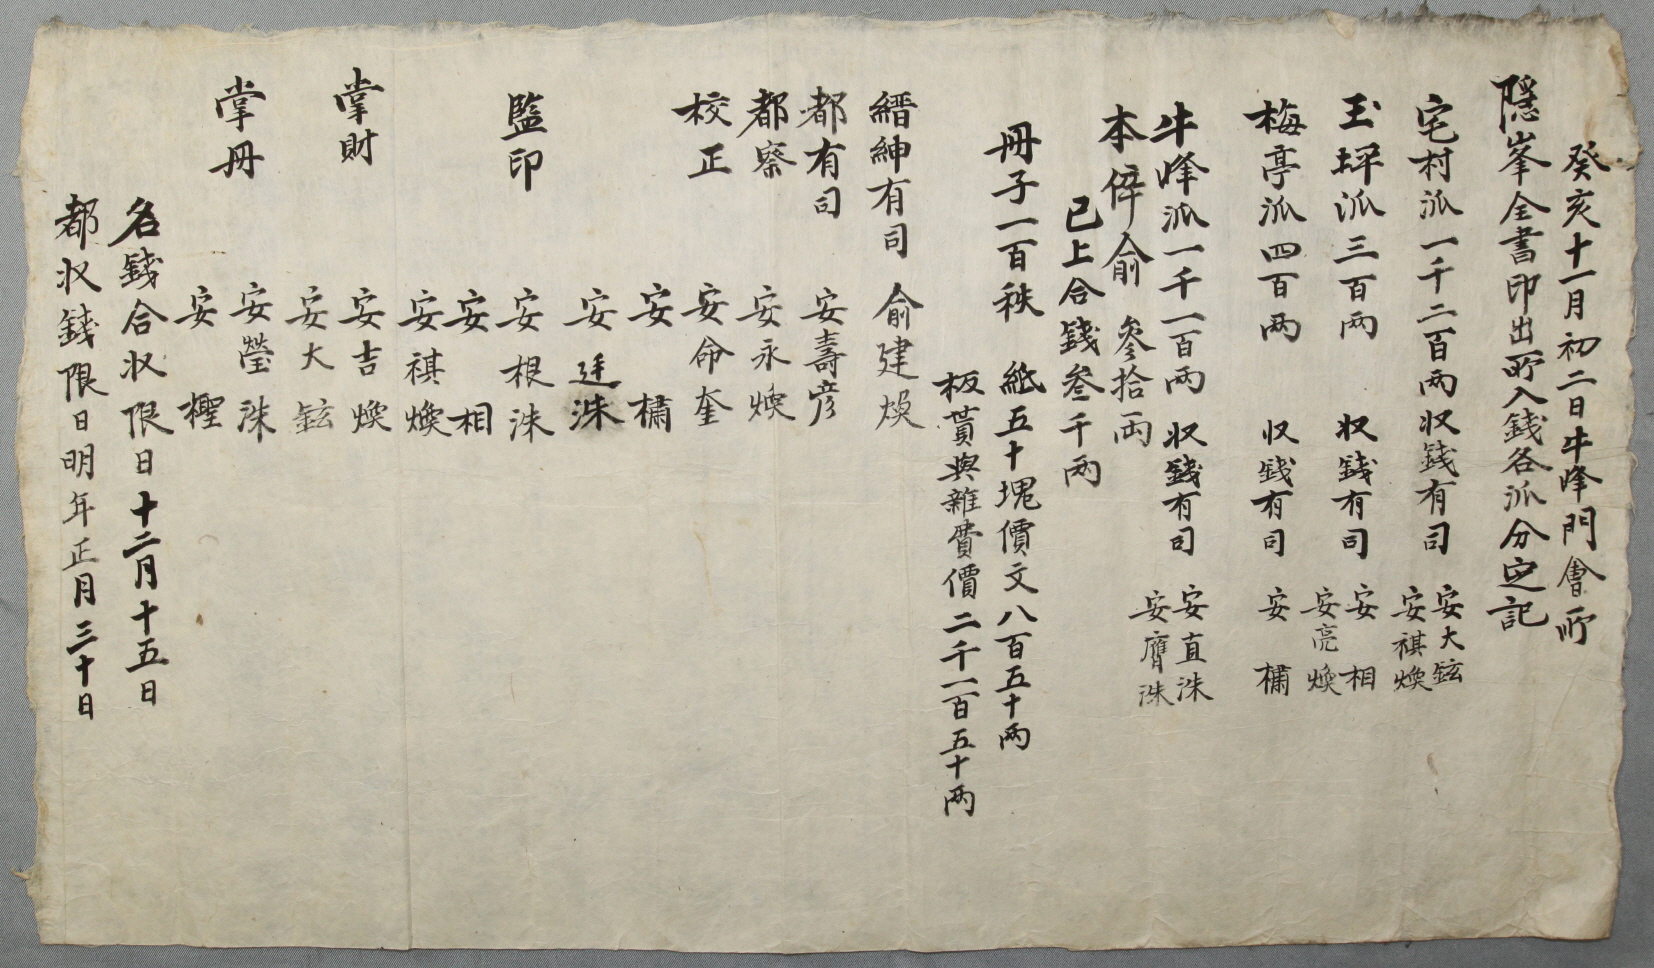 癸亥十一月初二日牛峰門會所
隱峯全書印出所入錢各派分定記
宅村派一千二百兩 収錢有司 安大鉉 安祺煥
玉坪派三百兩 収錢有司 安相 安亮煥
梅亭派四百兩 収錢有司 安橚
牛峰派一千一百兩 収錢有司 安直洙 安膺洙
本倅俞 參拾兩
已上合錢叁千兩
冊子一百秩 紙五十塊價文八百五十兩
板賃與雜費價二千一百五十兩
縉紳有司 俞建煥
都有司 安壽彦
都察 安永煥
校正 安命奎
安橚
安廷洙
監印 安根洙
安相
安祺煥
掌財 安吉煥
安大鉉
掌冊 安瑩洙
安檉
名錢合収限日十二月十五日
都収錢限日明年正月三十日